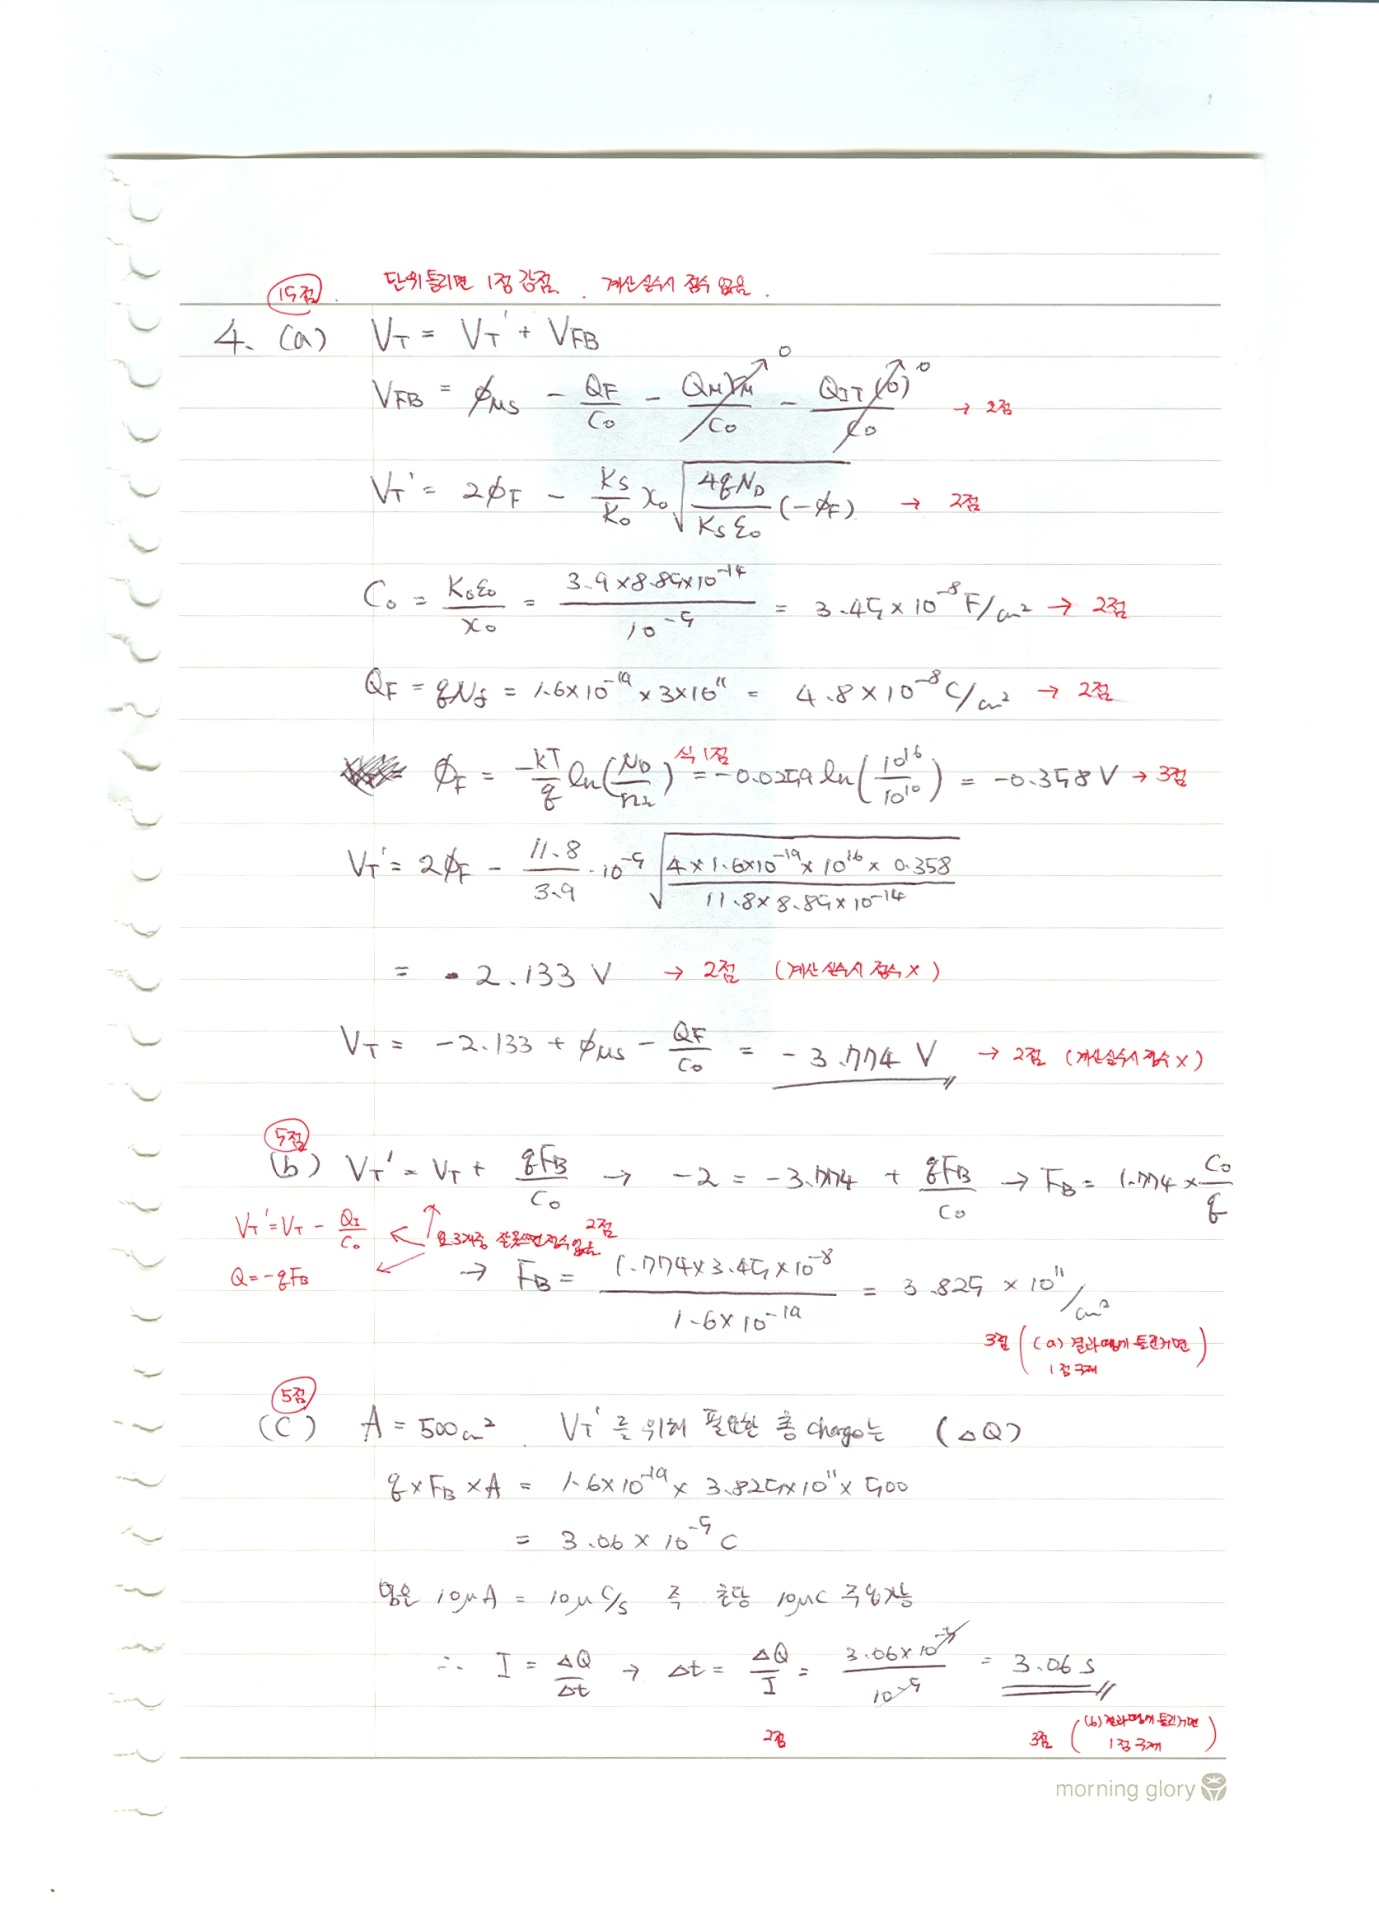 15점. 단위틀리면 1점 감점. 계산실수시 점수 없음.
4. (a) V_T = V_T' + V_FB
V_FB = φ_MS - Q_F/C_0 - Q_M γ_M/C_0 → 0 - Q_IT(0)/C_0 → 0 → 2점
V_T' = 2φ_F - K_S/K_0 x_0 √(4qN_D/K_Sε_0 (-φ_F)) → 2점
C_0 = K_0ε_0/x_0 = 3.9×8.85×10^-14/10^-5 = 3.45×10^-8 F/cm² → 2점
Q_F = qN_f = 1.6×10^-19 × 3×10^11 = 4.8×10^-8 C/cm² → 2점
φ_F = -kT/q ln(N_D/n_i) 식 1점 = -0.0259 ln(10^16/10^10) = -0.358 V → 3점
V_T' = 2φ_F - 11.8/3.9 · 10^-5 √(4×1.6×10^-19×10^16×0.358/11.8×8.85×10^-14)
= -2.133 V → 2점 (계산실수시 점수 X)
V_T = -2.133 + φ_MS - Q_F/C_0 = -3.774 V → 2점 (계산실수시 점수 X)
5점
(b) V_T' = V_T + qF_B/C_0 → -2 = -3.774 + qF_B/C_0 → F_B = 1.774 × C_0/q
V_T' = V_T - Q_I/C_0 요 3개중 잘못쓰면 점수 없음 2점
Q = -qF_B → F_B = 1.774×3.45×10^-8/1.6×10^-19 = 3.825 × 10^11/cm²
3점 ((a) 결과땜에 틀린거면 1점 구제)
5점
(C) A = 500cm² V_T' 를 위해 필요한 총 charge는 (△Q)
q×F_B×A = 1.6×10^-19 × 3.825×10^11 × 500
= 3.06 × 10^-5 C
빔은 10μA = 10μC/s 즉 초당 10μC 주입가능
∴ I = △Q/△t → △t = △Q/I = 3.06×10^-5/10^-5 = 3.06 s
2점 3점 ((b) 결과땜에 틀린거면 1점 구제)
morning glory